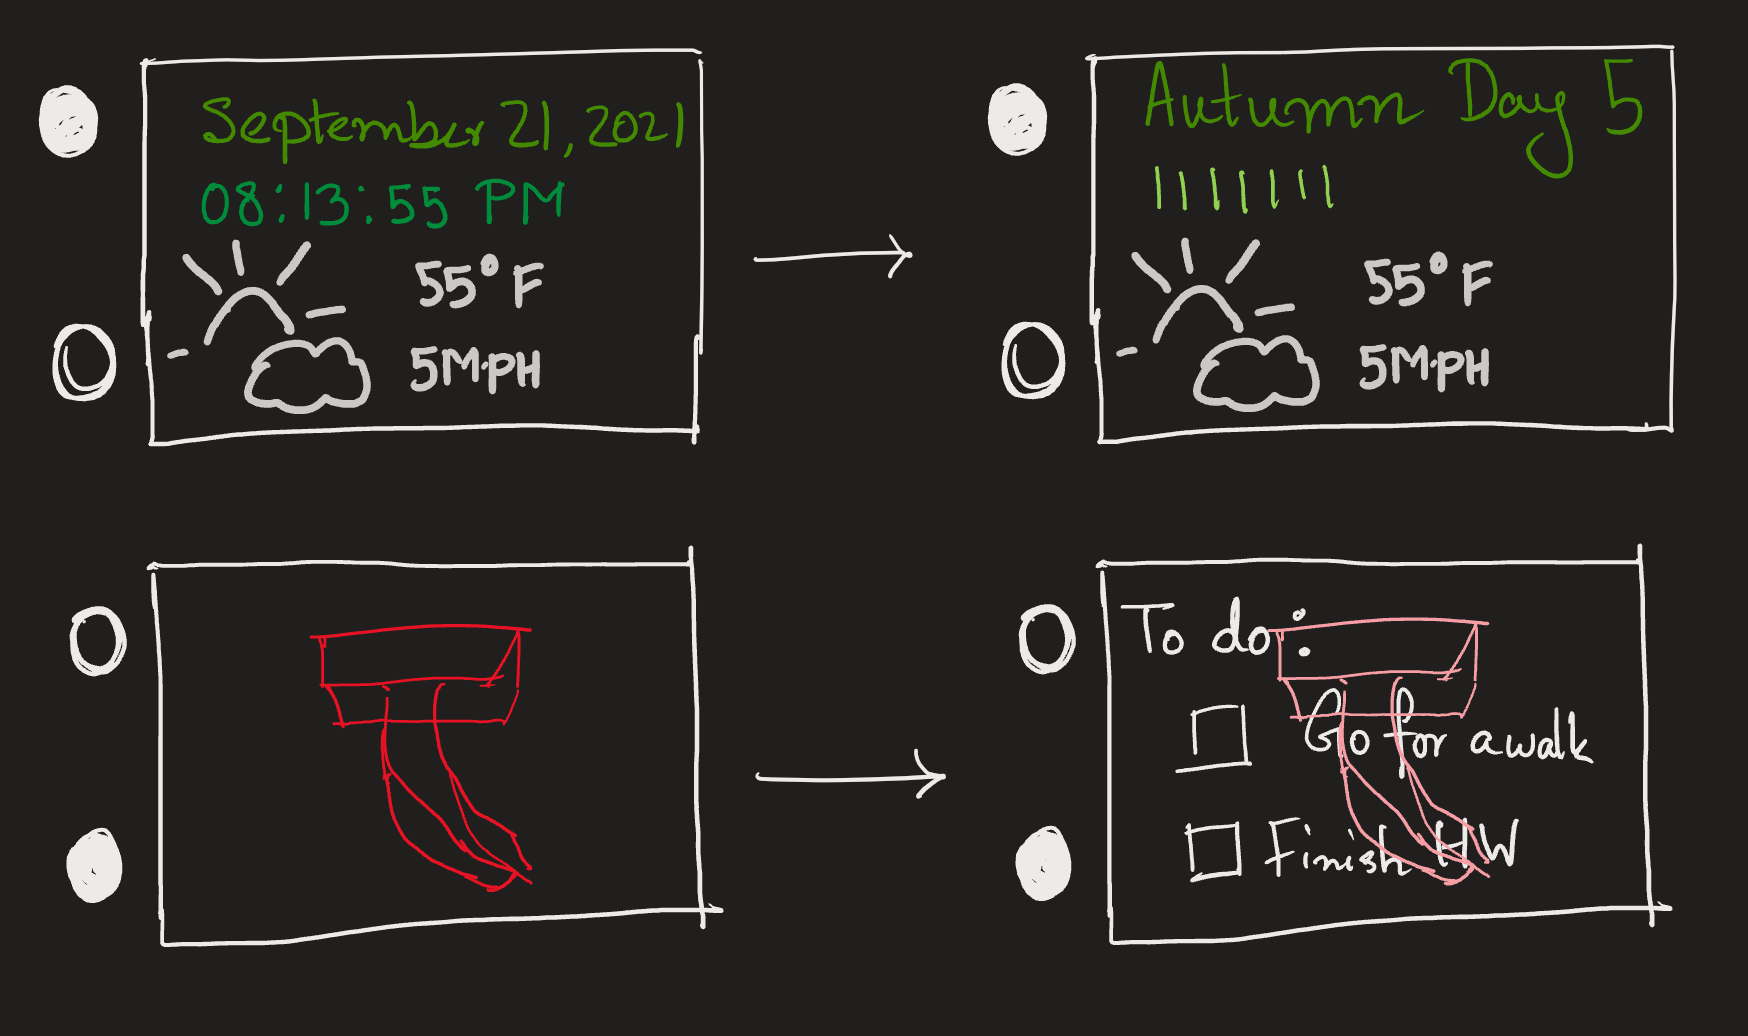 September 21, 2021
08:13:55 PM
55°F
5MPH
Autumn Day 5
55°F
5MPH
To do:
Go for a walk
Finish HW